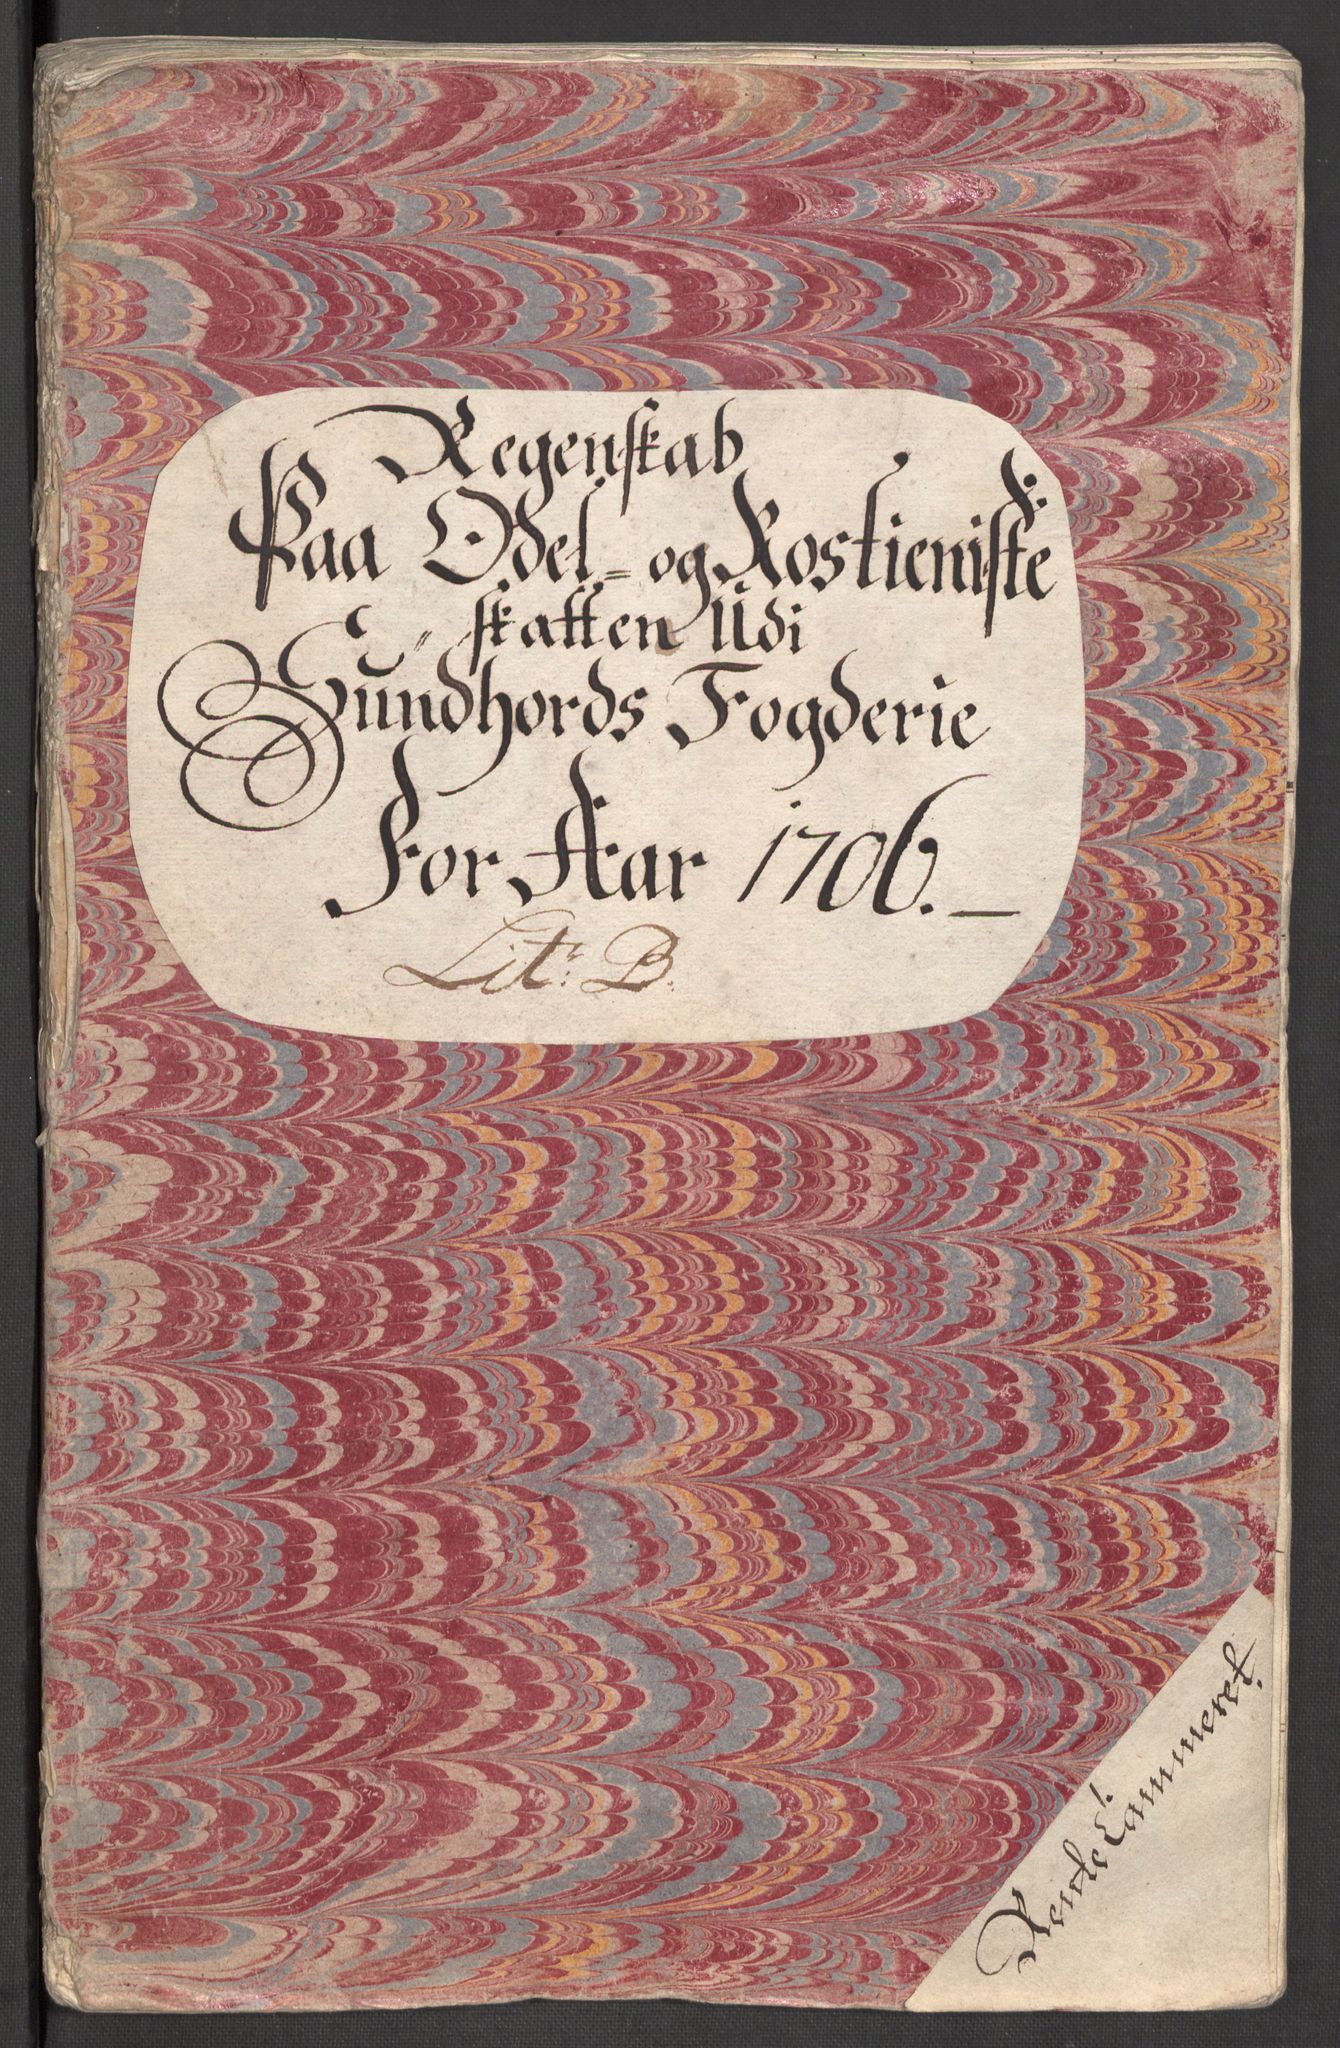 Regenskab
Paa Odel- og Rostieniste
skatten Udi
Sundhords Fogderie
For Aar 1706.
Litr. B.
Rente Cammeret.